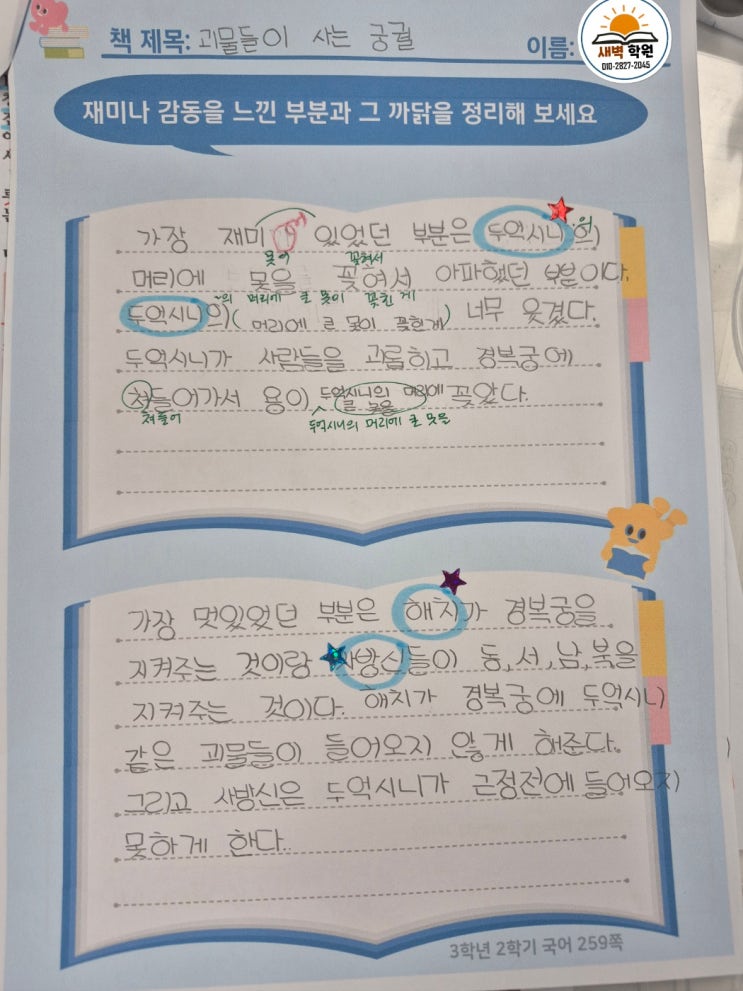 책 제목: 괴물들이 사는 궁궐
이름:
새벽 학원
010-2827-2045
재미나 감동을 느낀 부분과 그 까닭을 정리해 보세요
가장 재미 있었던 부분은 두억시니의
못이 꽂혀서
머리에 못을 꽂여서 아파했던 부분이다.
의 머리에 큰 못이 꽂힌 게
두억시니의(머리에 큰 못이 꽂힌게) 너무 웃겼다.
두억시니가 사람들을 괴롭히고 경복궁에
쳐들어가서 용이 두억시니의 머리에 큰 못을 꽂았다.
쳐들어
두억시니의 머리에 큰 못을
가장 멋있었던 부분은 해치가 경복궁을
지켜주는 것이랑 사방신들이 동,서,남,북을
지켜주는 것이다. 해치가 경복궁에 두억시니
같은 괴물들이 들어오지 않게 해준다.
그리고 사방신은 두억시니가 근정전에 들어오지
못하게 한다.
3학년 2학기 국어 259쪽